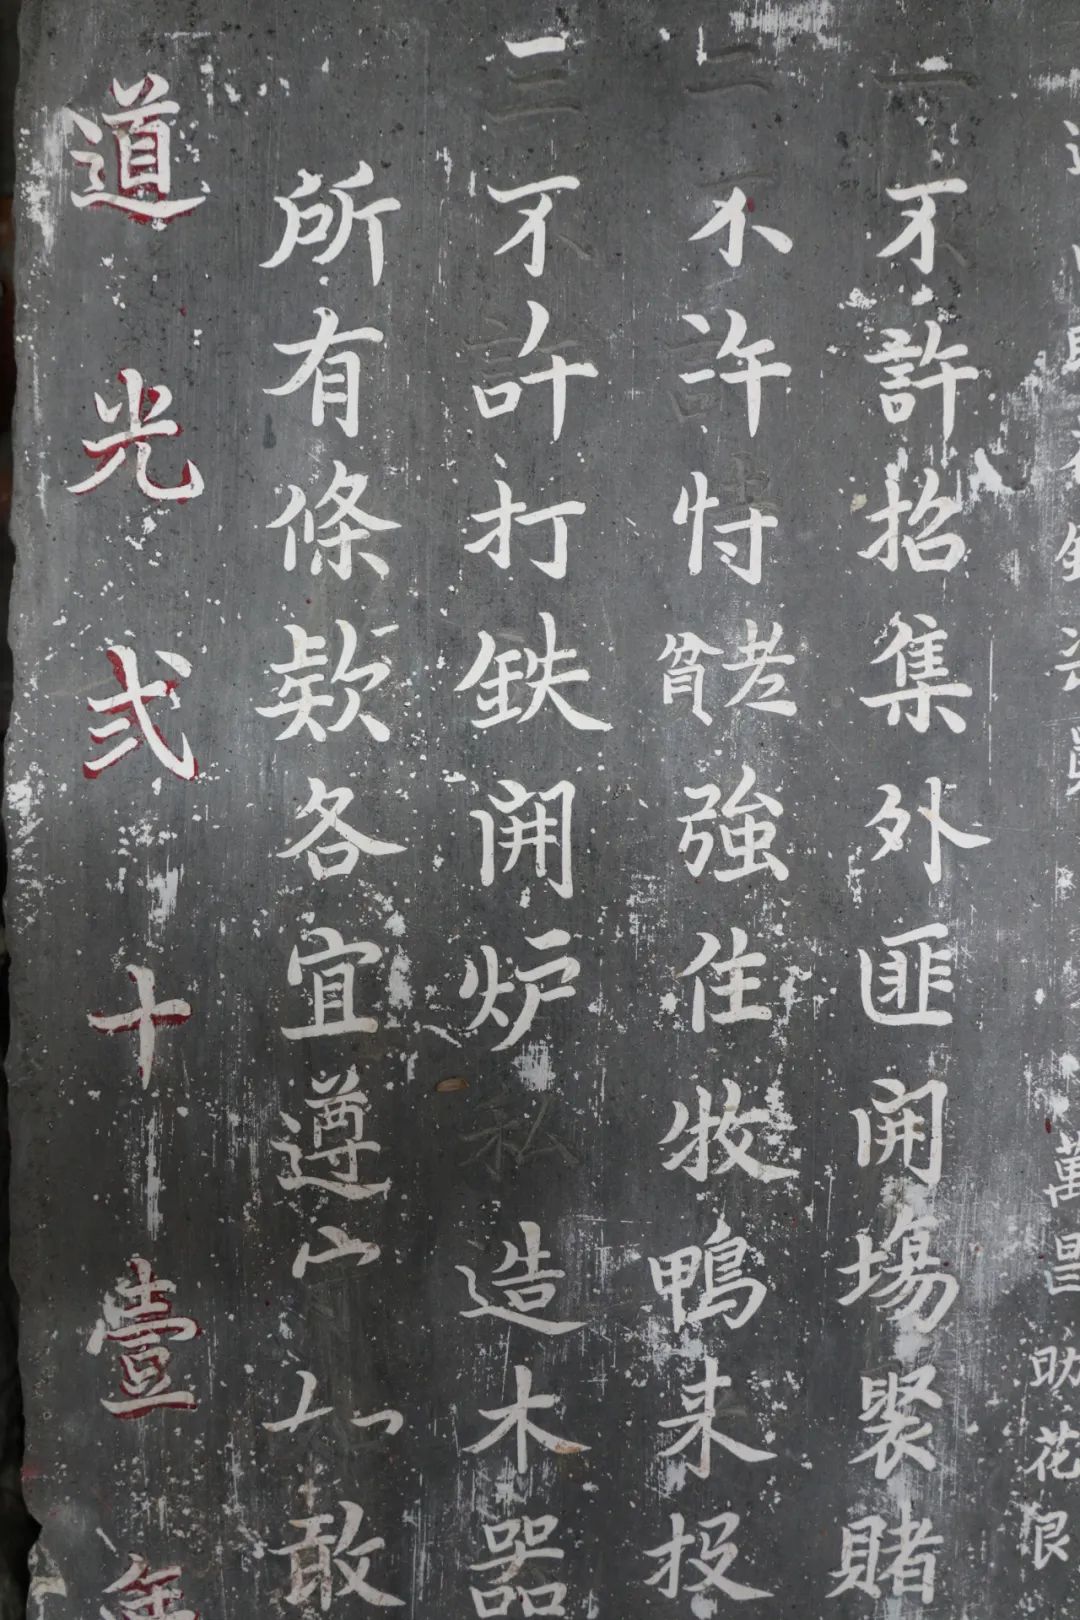 萬 助花艮
一不許招集外匪開塲聚賭
二不許恃老貧強住牧鴨来投
三不許打鉄開炉私造木器
所有條欵各宜遵守如敢
道光弍十壹年